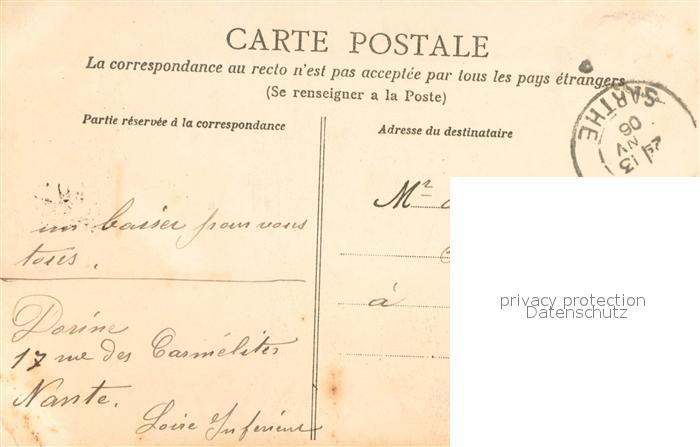 CARTE POSTALE
La correspondance au recto n'est pas acceptée par tous les pays étrangers
(Se renseigner a la Poste)
Partie réservée à la correspondance
Adresse du destinataire
SARTHE
13
NV
06
Mr
un baiser pour vous
tous.
à
Dorine
17 rue des Carmélites
Nante.
Loire Inférieure
privacy protection
Datenschutz